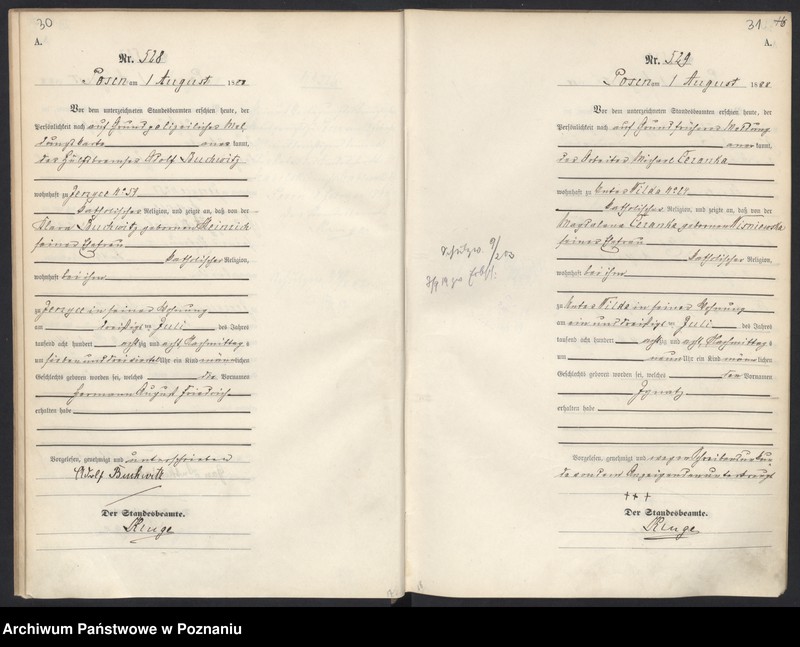 30
A.
Nr. 528
Posen am 1 August 1888
Vor dem unterzeichneten Standesbeamten erschien heute, der
Persönlichkeit nach auf Grund polizeilicher Mel
dungskarte anerkannt,
der Hülfsbremser Adolf Buckwitz
wohnhaft zu Jersyce No 51
katholischer Religion, und zeigte an, daß von der
Klara Buckwitz geborenen Heinrich
seiner Ehefrau
katholischer Religion,
wohnhaft bei ihm
zu Jersyce in seiner Wohnung
am dreißigsten Juli des Jahres
tausend acht hundert achtzig und acht Nachmittags
um sieben und dreiviertel Uhr ein Kind männlichen
Geschlechts geboren worden sei, welches die Vornamen
Hermann August Friedrich
erhalten habe
Vorgelesen, genehmigt und unterschrieben
Adolf Buckwitz
Der Standesbeamte.
31
A.
Nr. 529
Posen am 1 August 1888
Vor dem unterzeichneten Standesbeamten erschien heute, der
Persönlichkeit nach auf Grund früherer Meldung
anerkannt,
der Arbeiter Michael Ceranka
wohnhaft zu Unter Wilda No 24
katholischer Religion, und zeigte an, daß von der
Magdalena Ceranka geborenen Wisniewska
seiner Ehefrau
katholischer Religion,
wohnhaft bei ihm
zu Unter Wilda in seiner Wohnung
am ein und dreißigsten Juli des Jahres
tausend acht hundert achtzig und acht Nachmittags
um neun Uhr ein Kind männlichen
Geschlechts geboren worden sei, welches den Vornamen
Ignatz
erhalten habe
Vorgelesen, genehmigt und wegen Schreibensunkun
de von dem Anzeigenden unterkreuzt
+++
Der Standesbeamte.
Archiwum Państwowe w Poznaniu